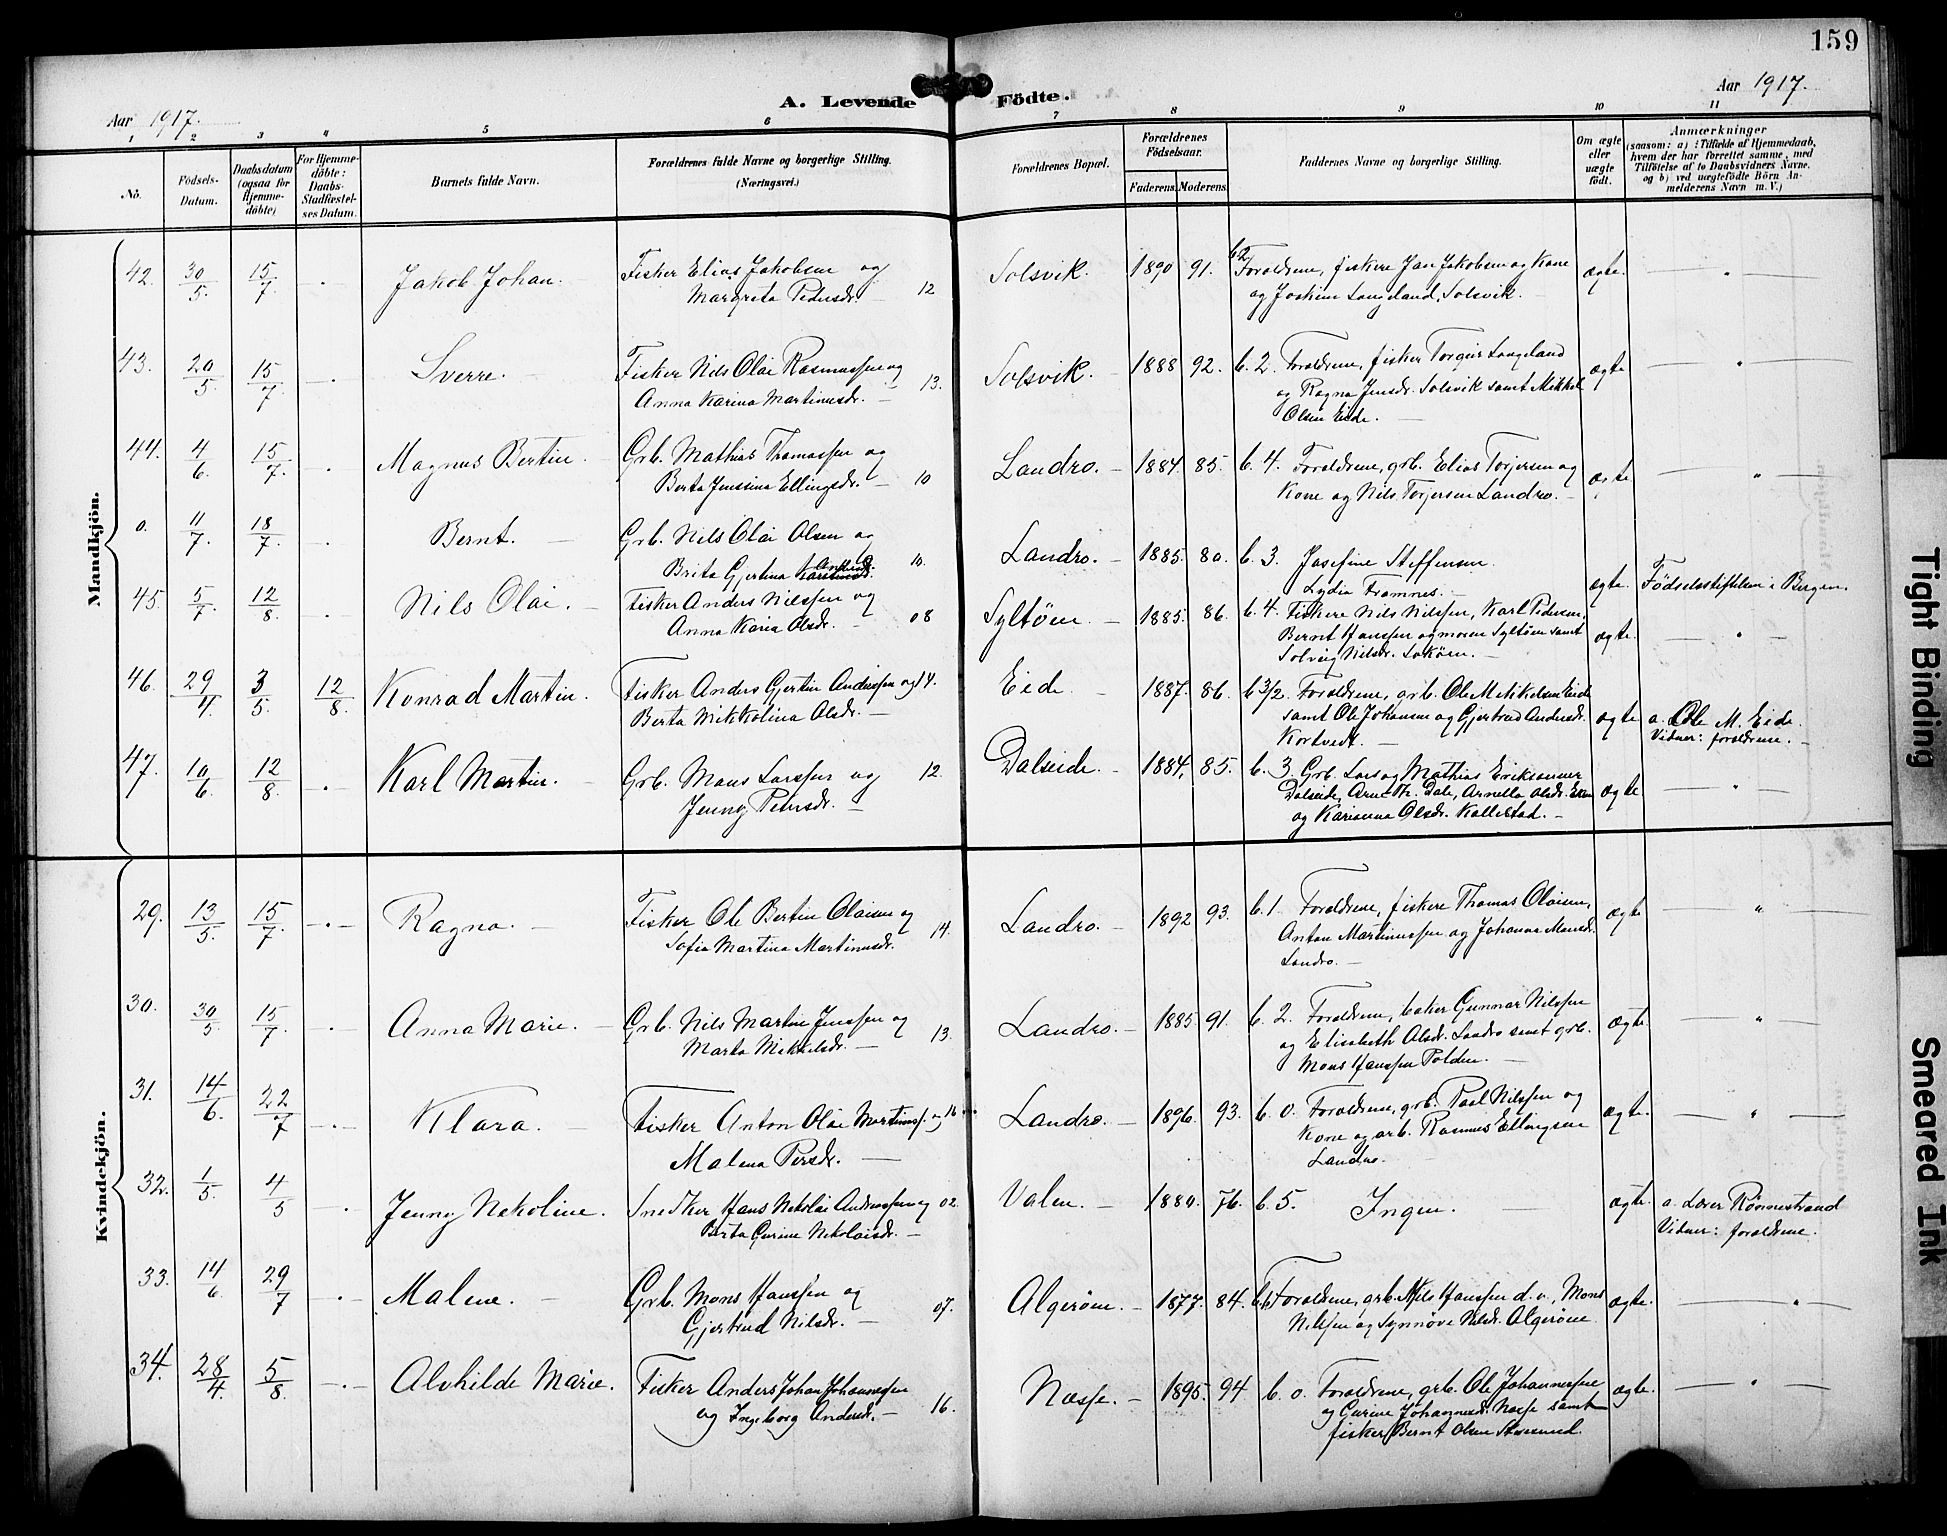 159
Aar 1917.
A. Levende Födte.
Aar 1917.
1 2 3 4 5 6 7 8 9 10 11
No.
Födsels-
Datum.
Daabsdatum
(ogsaa for
Hjemme-
döbte)
For Hjemme-
döbte:
Daabs-
Stadfæstel-
ses Datum.
Barnets fulde Navn.
Forældrenes fulde Navne og borgerlige Stilling.
(Næringsvei.)
Forældrenes Bopæl.
Forældrenes
Födselsaar.
Faderens. Moderens.
Faddernes Navne og borgerlig Stilling.
Om ægte
eller
uægte
födt.
Anmærkninger
(saasom: a) i Tilfælde af Hjemmedaab,
hvem der har forrettet samme, med
Tilföielse af to Daabsvidners Navne.
og b) ved uægtefödte Börn An-
melderens Navn m. V.)
Mandkjön.
42. 30/5 15/7 Jakob Johan. Fisker Elias Jakobsen og
Margreta Pedersdr. 12
Solsvik. 1890 91. b2 Foraldrene, fiskere Jan Jakobsen og Kone
og Joakim Langeland, Solsvik. ægte. "
43. 20/5 15/7 Sverre. Fisker Nils Olai Rasmussen og
Anna Karina Martinusdr. 13.
Solsvik. 1888 92. b. 2. Foraldrene, fisker Torgeir Langeland
og Ragna Jensdr. Solsvik samt Mikkel
Olsen Eide. ægte "
44. 4/6 15/7. Magnus Bertin. Grb. Mathias Thomassen og
Berta Jenssina Ellingsdr. 10
Landro. 1884. 85. b. 4. Foraldrene, grb. Elias Torjersen og
Kone og Nils Torjersen Landro. ægte "
0. 11/7. 18/7. Bernt. Grb. Nils Olai Olsen og
Brita Gjertina 10.
Landro. 1885. 80. b. 3. Josefine Steffensen.
Lydia Framnes. ægte. Fødselsstiftelsen i Bergen.
45. 5/7 12/8 Nils Olai. Fisker Anders Nilssen og
Anna Karia Olsdr. 08
Syltøen. 1885. 86. b. 4. Fiskere Nils Nilssen, Karl Pedersen,
Bernt Hanssen og moren Syltøen samt
Solveig Nilsdr. ægte. "
46. 29/4 3/5 12/8. Konrad Martin. Fisker Anders Gjertin Anderssen og 14.
Berta Mikkolina Olsdr.
Eide. 1887. 86. b 3/2. Foraldrene, grb. Ole M. Mikelsen Eide
samt Ole Johansen og Gjertrud Andersdr.
Kortvedt. ægte a. Ole M. Eide.
Vidner: foraldrene.
47. 10/6 12/8. Karl Martin. Grb. Mons Larssen og 12.
Jenny Petersdr.
Dalseide. 1884, 85. b. 3. Grb. Lars og Mathias Eriksønner
Dalseide, Arne Th. Dale, Arnella Olsdr.
og Karianna Olsdr. Kallestad. ægte "
Kvindekjön.
29. 13/5. 15/7. Ragna. Fisker Ole Bertin Olaisen og
Sofia Martina Martinusdr. 14.
Landro. 1892 93. b. 1. Foraldrene, fiskere Thomas Olaisen,
Anton Martinussen og Johanna Monsdr.
Landro. ægte "
30. 30/5. 15/7. Anna Marie. Grb. Nils Martin Jenssen og
Marta Mikkelsdr. 13.
Landro. 1885. 91. b. 2. Foraldrene, baker Gunnar Nilssen
og Elisabeth Olsdr. Landro samt grb.
Mons Hanssen Polden. ægte. "
31. 14/6. 22/7 Klara. Fisker Anton Olai Martinuss. og 16
Malena Persdr.
Landro. 1896. 93. b. 0. Foraldrene, grb. Paul Nilssen og
Kone og grb. Rasmus Ellingsen
Landro. ægte. "
32. 1/5. 4/5 Jenny Nekoline. Snedker Hans Nikolai Andreassen og 02.
Berta Gurine Nikolaisdr.
Valen. 1880. 76. b. 5. Ingen. ægte. a. Lærer Rønnestrand
Vidner: foraldrene.
33. 14/6. 29/7 Malene. Grb. Mons Hanssen og
Gjertrud Nilsdr. 07.
Algerøen. 1877. 84. Foraldrene, grb. Nils Hanssen d. e., Mons
Nilssen og Synnøve Nilsdr. Algerøen. ægte. "
34. 28/4. 5/8. Alvhilde Marie. Fisker Anders Johan Johannessen
og Ingeborg Andersdr. 16.
Nesse. 1895. 94 b. 0. Foraldrene, grb. Ole Johannessen
og Gurine Johannesdr. Nesse samt
fisker Bernt Olsen Storesund. ægte. "
Tight Binding
Smeared Ink